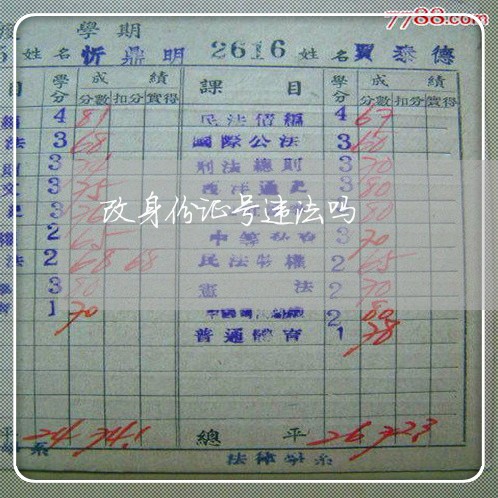 7788.com
學期
5 姓名 忻鼎明 2616 姓名 賈泰德
目 學分 成績 課目 學分 成績
分數 扣分 實得 分數 扣分 實得
4 81 民法債編 4 67
法 3 68 國際公法 3 60
3 刑法總則 3 70
3 75 3 80
改身份证号违法吗
3 3 80
權 2 65 3 70
法 2 68 68 民法物權 2 65
3 80 憲法 2 70
1 70 2 80
普通體育 1 78
平 24 74.1 總平 26 72.3
系 法律學系